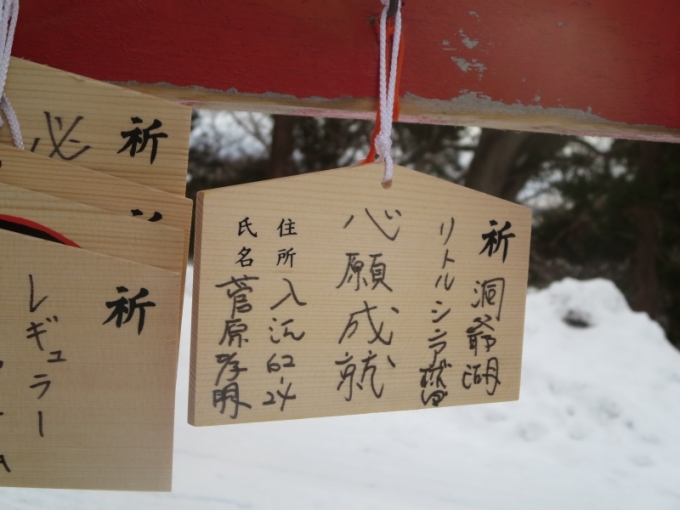 祈
洞爺湖
リトルシニア
心願成就
住所 入江62-24
氏名 菅原孝明
祈
必
祈
レギュラー